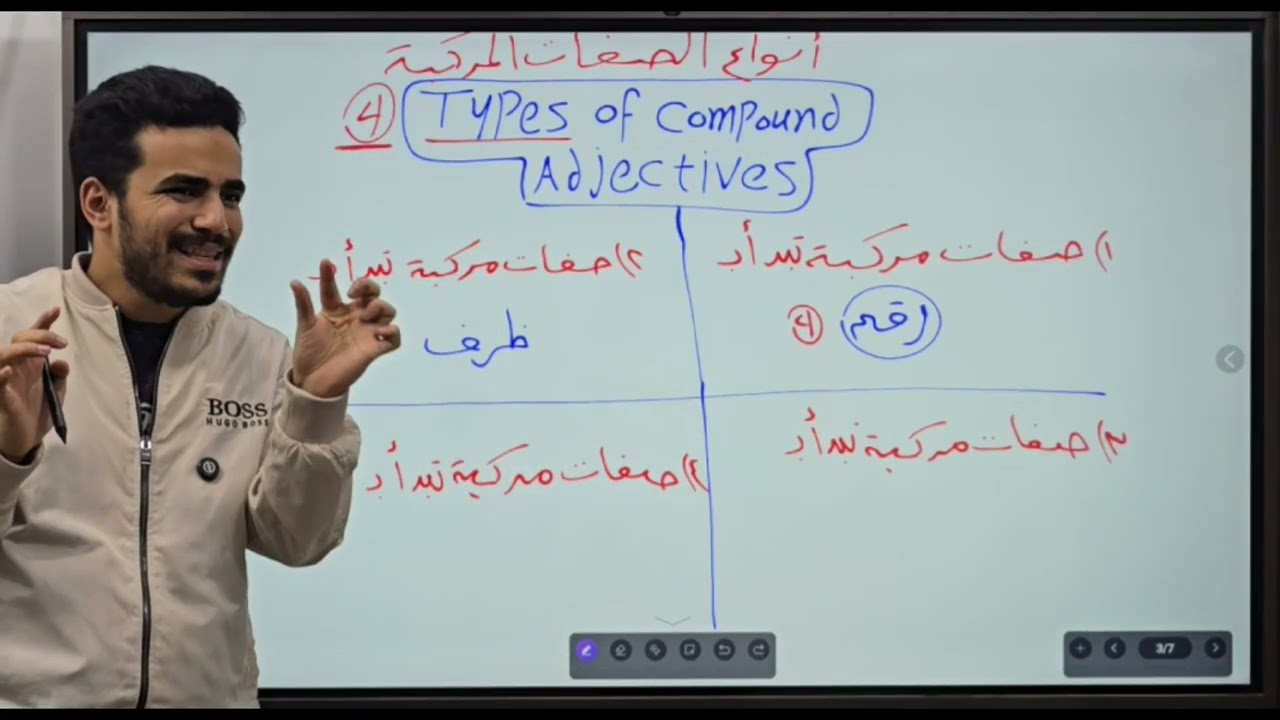 أنواع الصفات المركبة
④ Types of compound
Adjectives
١) صفات مركبة تبدأ بـ
رقم ④
٢) صفات مركبة تبدأ بـ
ظرف
٣) صفات مركبة تبدأ بـ
٤) صفات مركبة تبدأ بـ
BOSS
HUGO BOSS
3/7